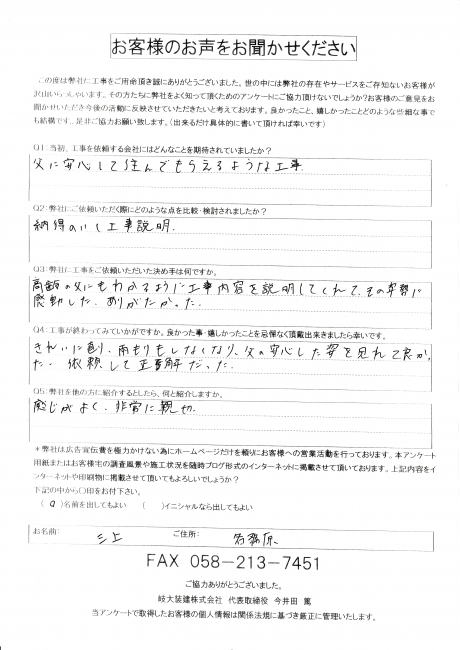 お客様のお声をお聞かせください
この度は弊社に工事をご用命頂き誠にありがとうございました。世の中には弊社の存在やサービスをご存知ないお客様が
沢山いらっしゃいます。その方たちに弊社をよく知って頂くためのアンケートにご協力頂けないでしょうか?お客様のご意見をお
聞かせいただき今後の活動に反映させていただきたいと考えております。良かったこと、嬉しかったことどのような些細な事で
も結構です。是非ご協力お願い致します。(出来るだけ具体的に書いて頂ければ幸いです)
Q1:当初、工事を依頼する会社にはどんなことを期待されていましたか?
父に安心して住んでもらえるような工事.
Q2:弊社にご依頼いただく際にどのような点を比較・検討されましたか?
納得のいく工事説明.
Q3:弊社に工事をご依頼いただいた決め手は何ですか。
高齢の父にもわかるように工事内容を説明してくれて、その姿勢に
感動した. ありがたかった.
Q4:工事が終わってみていかがですか。良かった事・嬉しかったことを忌憚なく頂戴出来きましたら幸いです。
きれいに直り、雨もりもしなくなり、父の安心した姿を見れて良かっ
た. 依頼して正解だった.
Q5:弊社を他の方に紹介するとしたら、何と紹介しますか。
感じがよく、非常に親切.
*弊社は広告宣伝費を極力かけない為にホームページだけを頼りにお客様への営業活動を行っております。本アンケート
用紙またはお客様宅の調査風景や施工状況を随時ブログ形式のインターネットに掲載させて頂いております。上記内容をイ
ンターネットや印刷物に掲載させて頂いてもよろしいでしょうか?
下記の中から〇印をお付下さい。
(〇)名前を出してもよい ( )イニシャルなら出してもよい
お名前: 三上 ご住所: 各務原
FAX 058-213-7451
ご協力ありがとうございました。
岐大装建株式会社 代表取締役 今井田 篤
当アンケートで取得したお客様の個人情報は関係法規に基づき厳正に管理いたします。